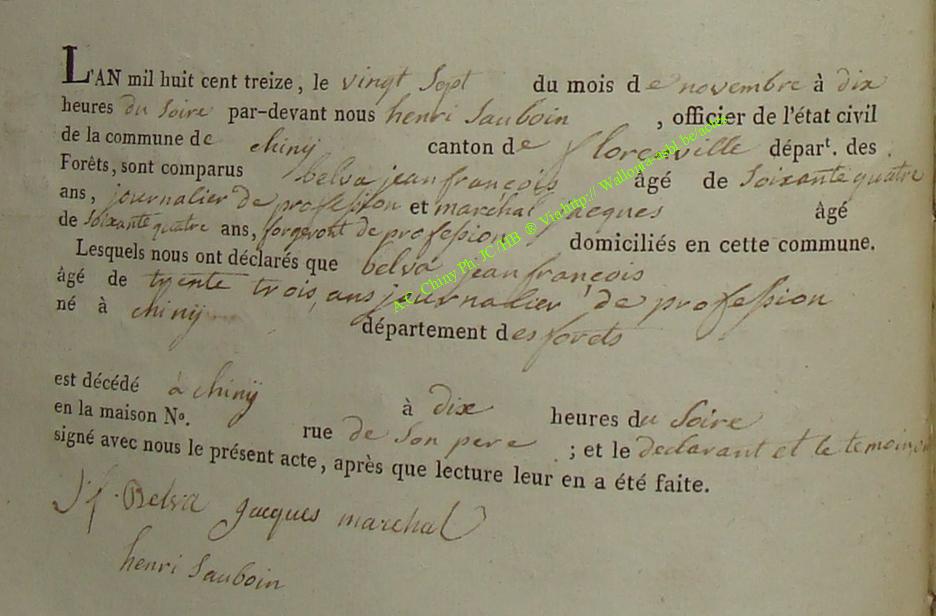 L'AN mil huit cent treize, le vingt Sept du mois de novembre à dix
heures du Soire par-devant nous henri Sauboin , officier de l'état civil
de la commune de chiny canton de florenville départ. des
Forêts, sont comparus belva jean françois âgé de Soixante quatre
ans, journalier de profession et maréchal jacques âgé
de Soixante quatre ans, forgeront de profession domiciliés en cette commune.
Lesquels nous ont déclarés que belva jean françois
âgé de trente trois ans journalier de profession
né à chiny département des forets
est décédé à chiny à dix heures du Soire
en la maison No. rue de Son pere ; et le declarant et le temoin ont
signé avec nous le présent acte, après que lecture leur en a été faite.
J f Belva jacques marchal
henri Sauboin
A.C. Chiny Ph: JC /HB ® Via http:// Wallonia-asbl.be/actes